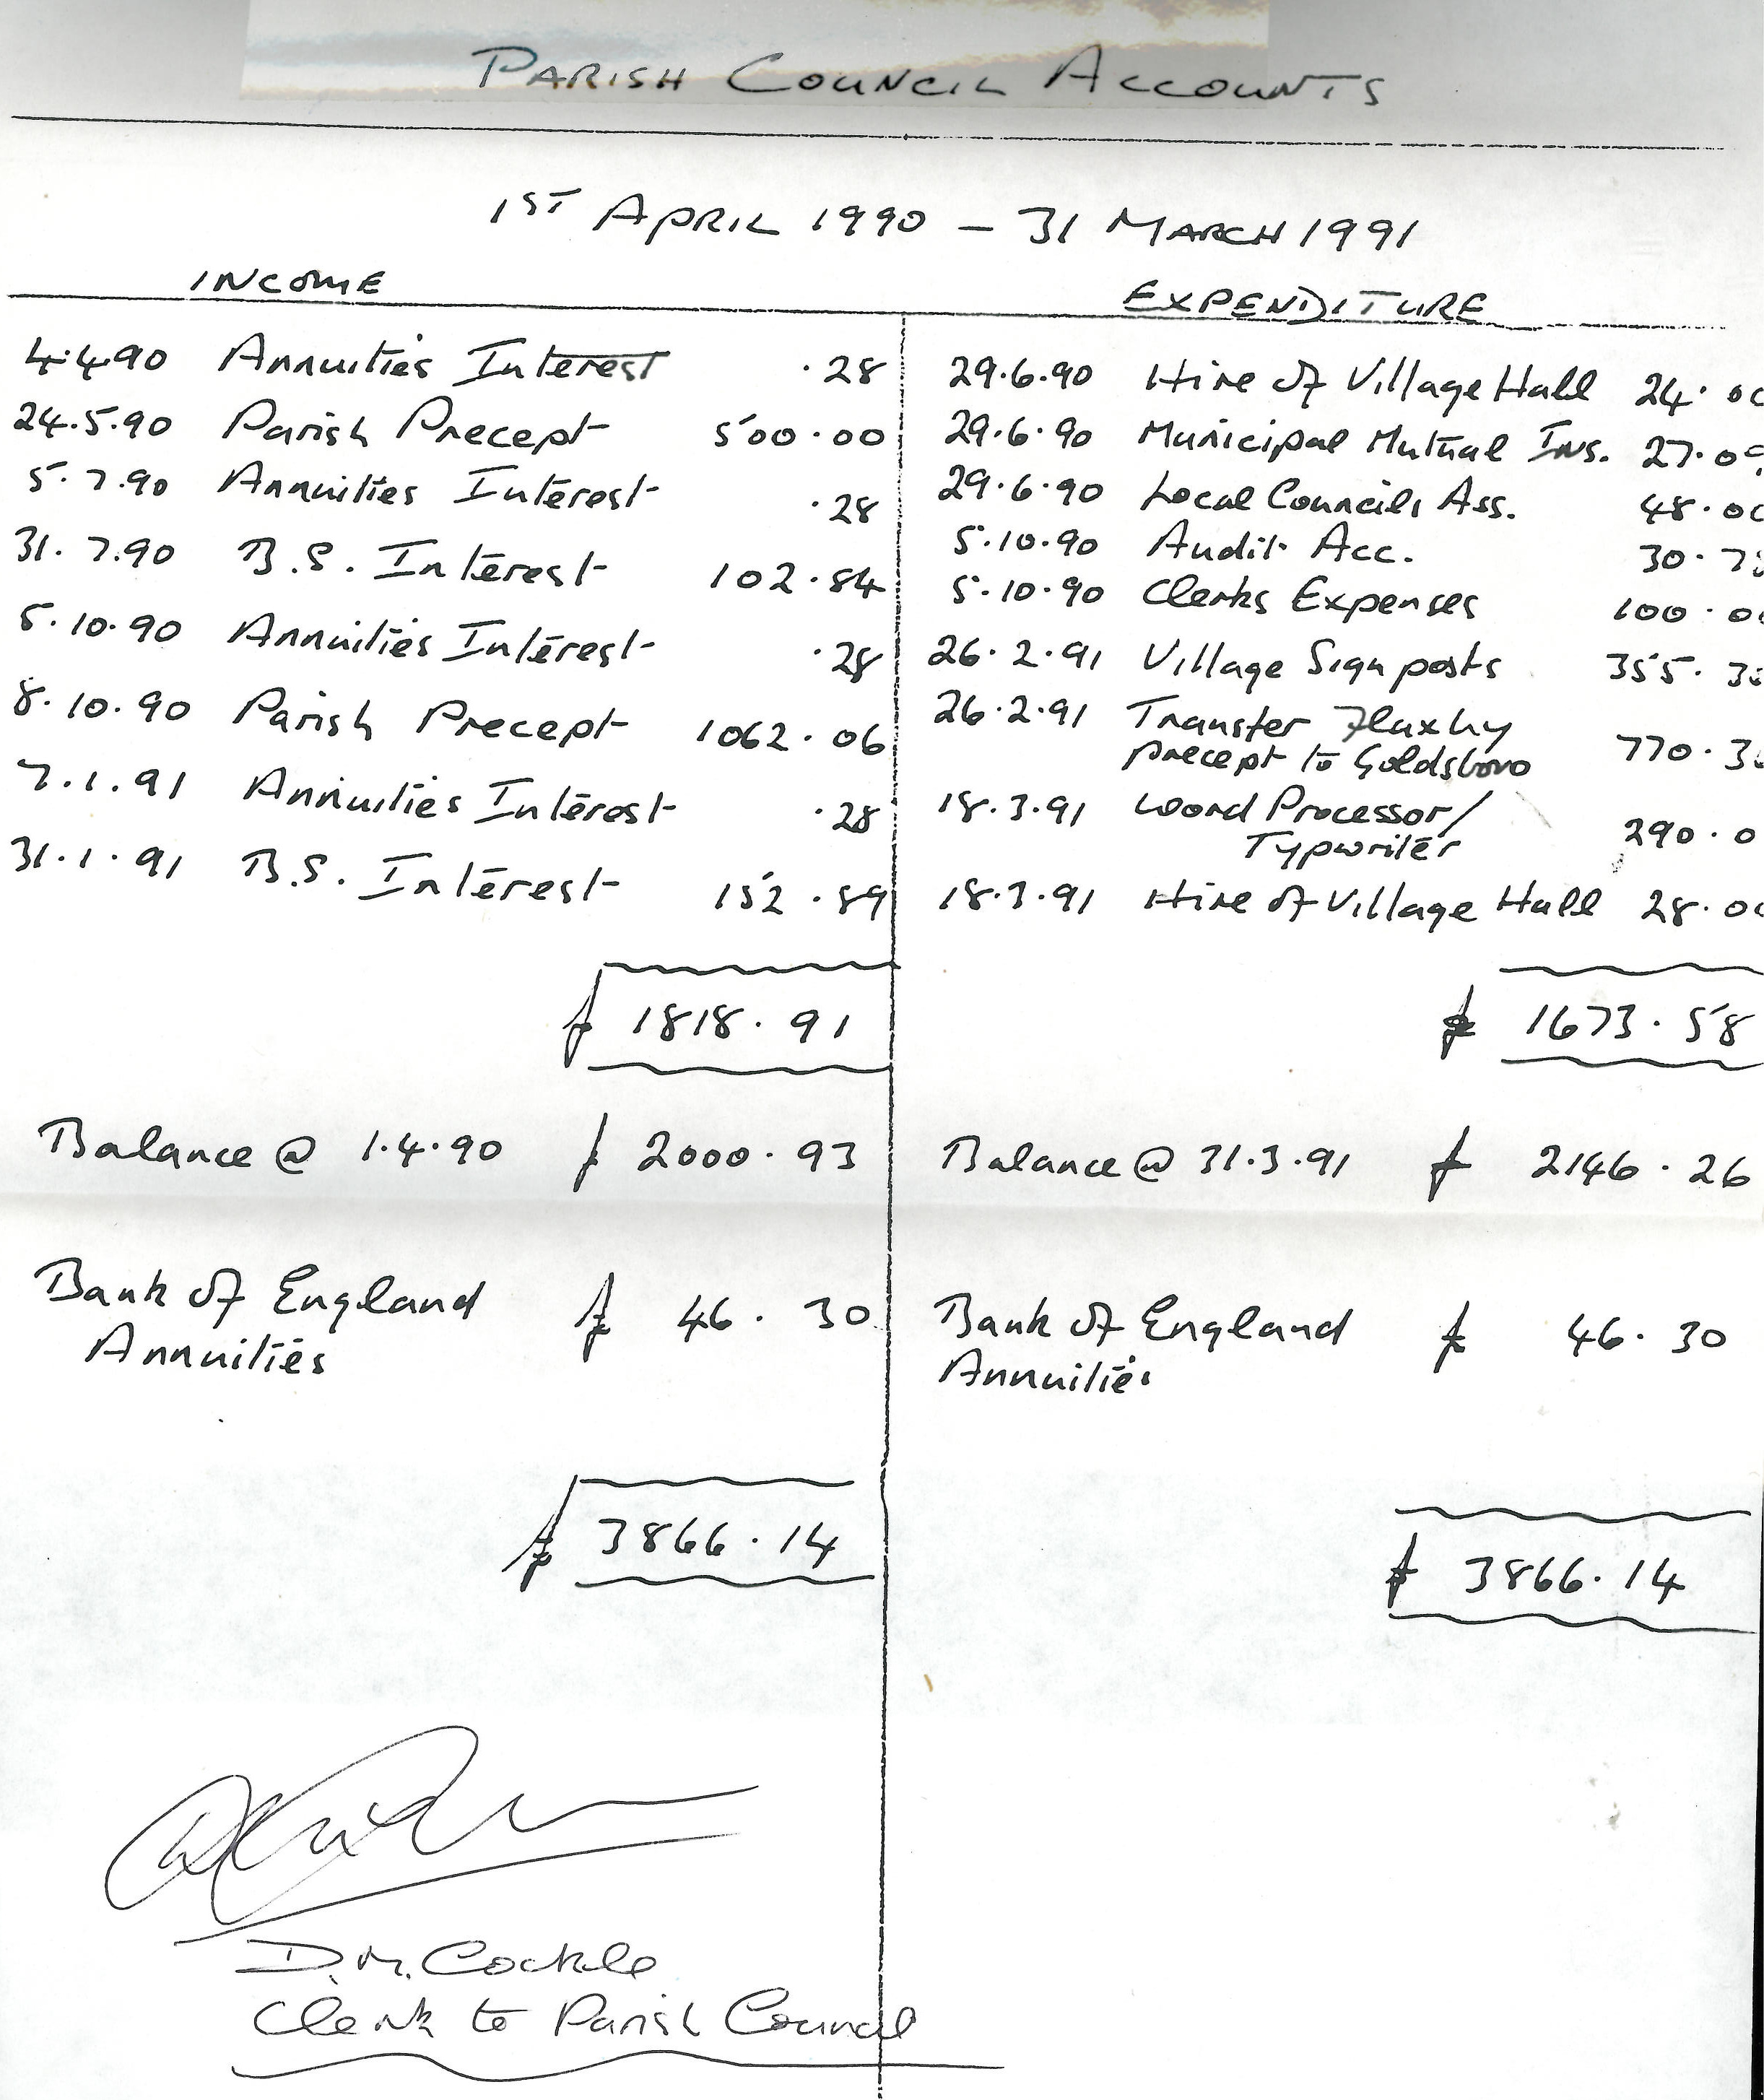 PARISH COUNCIL ACCOUNTS
1ST APRIL 1990 – 31 MARCH 1991
INCOME
4.4.90 Annuities Interest .28
24.5.90 Parish Precept 500.00
5.7.90 Annuities Interest .28
31.7.90 B.S. Interest 102.84
5.10.90 Annuities Interest .28
8.10.90 Parish Precept 1062.06
7.1.91 Annuities Interest .28
31.1.91 B.S. Interest 152.89
£ 1818.91
Balance @ 1.4.90 £ 2000.93
Bank of England £ 46.30
Annuities
£ 3866.14
EXPENDITURE
29.6.90 Hire of Village Hall 24.00
29.6.90 Municipal Mutual Ins. 27.09
29.6.90 Local Councils Ass. 48.00
5.10.90 Audit Acc. 30.7
5.10.90 Clerks Expenses 100.00
26.2.91 Village Sign posts 355.3
26.2.91 Transfer Flaxby
precept to Goldsboro 770.3
18.3.91 Word Processor/
Typwriter 290.0
18.3.91 Hire of Village Hall 28.00
£ 1673.58
Balance @ 31.3.91 £ 2146.26
Bank of England £ 46.30
Annuities
£ 3866.14
D.M. Cockle
Clerk to Parish Council